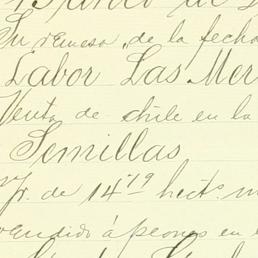 13 Junio de
Su remesa, de la fecha
Labor Las Mer
Venta de chile en la
Semillas
Yr. de 14 19 hects. m
vendido á peones en l